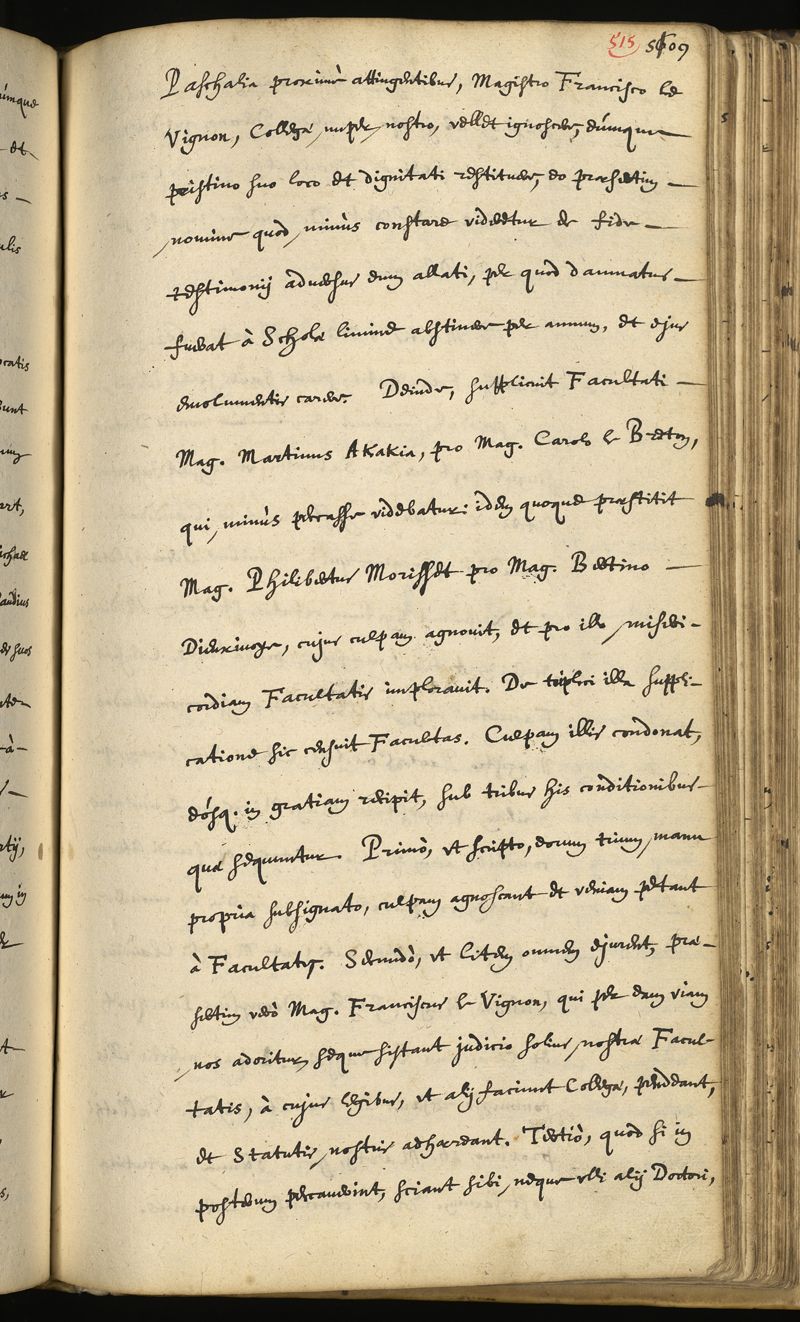 515 509
Paschalia proximè attingentibus, Magistro Francisco le
Vignon, Collegæ nuper nostro, vellet ignoscere, eúmque
pristino suo loco et dignitati restituere, eo præsertim
nomine quòd minùs constare videretur de fide
testimonij aduersus eum allati, per quod damnatus
fuerat à Scholæ limine abstinere per annum, et ejus
emolumentis carere. Deinde, supplicuit Facultati
Mag. Martinus Akakia, pro Mag. Carolo le Breton,
qui minùs peccasse videbatur: idem quoque præstitit
Mag. Philibertus Morisset pro Mag. Bertino
Dieuxivoye, cujus culpam agnouit, et pro illo miseri-
cordiam Facultatis implorauit. De triplici illa suppli-
catione sic censuit Facultas. Culpam illis condonat,
eósq. in gratiam recipit, sub tribus his conditionibus
quæ sequuntur. Primò, vt scripto, eorum trium manu
propria subsignato, culpam agnoscant et veniam petant
à Facultate. Secundò, vt litem omnem ejurent, præ-
sertim verò Mag. Franciscus le Vignon, qui per eam viam
nos adoritur, seque sistant judicio solius nostræ Facul-
tatis, à cujus legibus, vt alij faciunt Collegæ, pendeant,
et Statutis nostris adhæreant. Tertiò, quòd si in
posterum peccauerint, sciant sibi, neque vlli alij Doctori,
úmque
et
s
ulis
ocatis
bunt
ert,
scholæ
laudius
suos
à
rtij,
um in